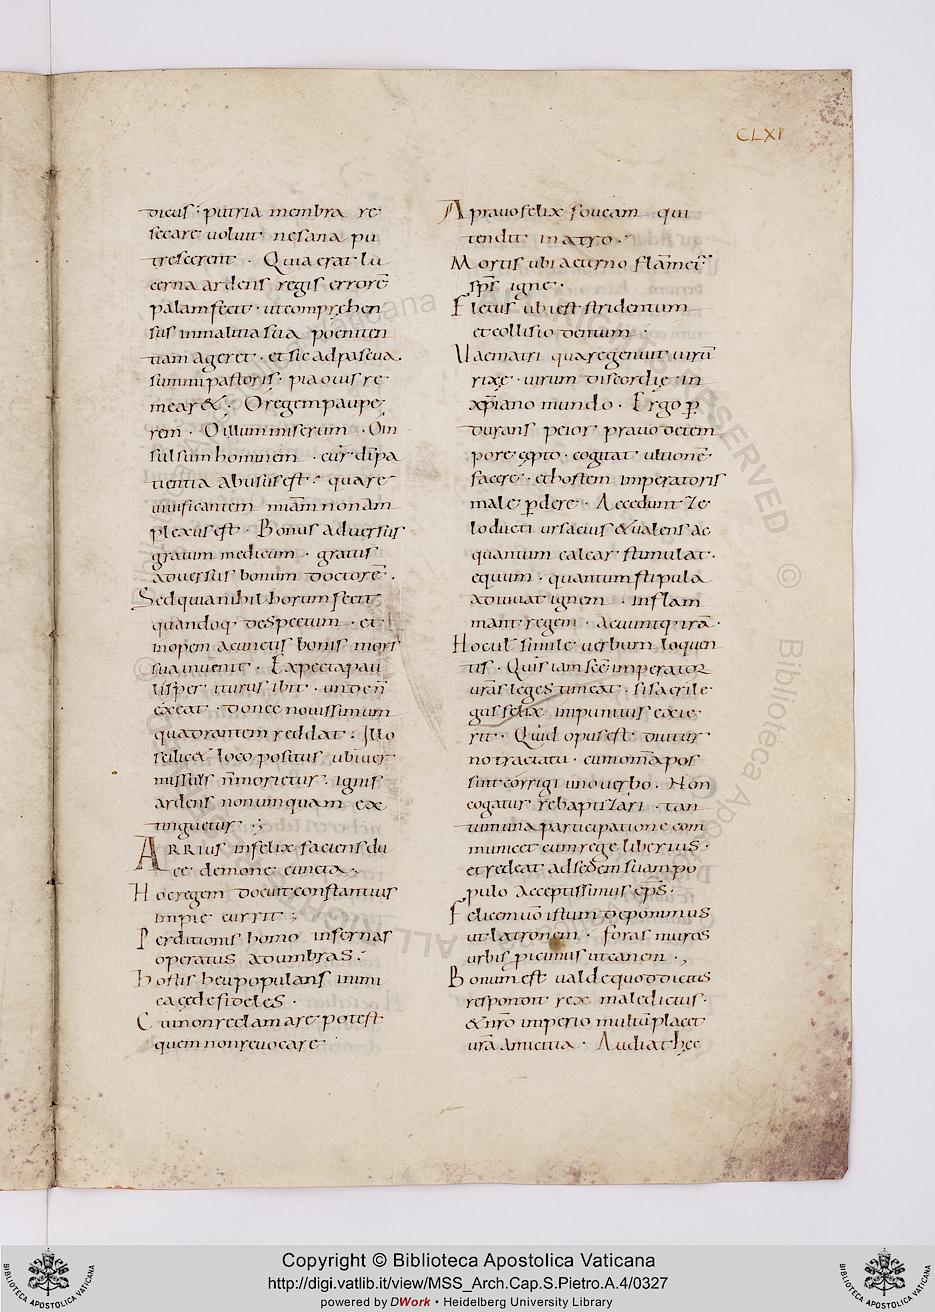 CLXI
dicus · putria membra re
secare uoluit · ne sana pu
trescerent · Quia erat lu
cerna ardens regis errorē
palam fecit · ut comprehen
sus in malitia sua poeniten
tiam ageret · et sic ad pascua ·
summi pastoris · pia ouis re
mear& · O regem paupe
rem · O illum miserum · O in
sulsum hominem · cur dī pa
tientia abusus est · quare
uiuificantem miām non am
plexus est · Bonus aduersus
gratum medicum · gratus
aduersus bonum doctorē ·
Sed quia nihil horum fecit
quandoq; despectum · et
inopem a cunctis bonis mors
sua inuenit · Expecta pau
lisper iturus ibit · unde ñ
exeat · donec nouissimum
quadrantem reddat · Illo
scilic& loco positus ubi uer
missuss ñ morietur · ignis
ardens non umquam ex
tinguetur ·
ARRIUS infelix faciens du
ce demone cuncta
Hoc regem docuit constantius
impie currit
Perditionis homo infernas
operatus ad umbras ·
Hostis heu populans inimi
ca cęde fideles ·
Cui non reclamare potest
quem non reuocare
A prauo felix foueam qui
tendit in atro ·
Mortis ubi aeterno flāmet
spīs igne ·
Fletus ubi est stridentium
et collisio dentium ·
Uae matri quare genuit uirū
rixę · uirum discordię in
xp̄iano mundo · Ergo p
durans peior prauo o item
pore cępto · cogitat ultionē
facere · et hostem imperatoris
male pdere · Accedunt ze
lo ducti ursacius & ualens ac
quantum calcar stimulat ·
equum · quantum stipula
adiuuat ignem · inflam
mant regem · acuuntq; irā ·
Hoc uł simile uerbum loquen
tis · Quis iam scē imperator
urās leges timeat · si sacrile
gus felix impunitus exie
rit · Quid opus est diutur
no tractatu · cum omā pos
sint corrigi uno uerbo · Non
cogatur rebaptizari · tan
tum una participatione com
municet cum rege liberius ·
et redeat ad sedem suam po
pulo acceptissimus ep̄s ·
Felicem uō istum deponimus
ut latronem · foras muros
urbis picimus ut canem ·
Bonum est ualde quod dictus
respondit rex maledictus ·
& nrō imperio multū placet
urā amicitia · Audiat hęc
Copyright © Biblioteca Apostolica Vaticana
http://digi.vatlib.it/view/MSS_Arch.Cap.S.Pietro.A.4/0327
powered by DWork • Heidelberg University Library
BIBLIOTECA APOSTOLICA VATICANA
BIBLIOTECA APOSTOLICA VATICANA